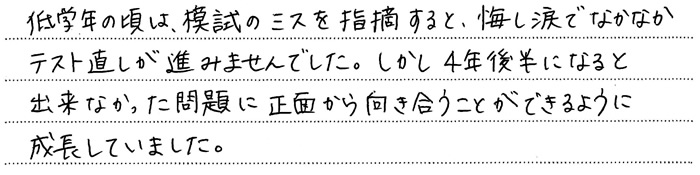 低学年の頃は、模試のミスを指摘すると、悔し涙でなかなか
テスト直しが進みませんでした。しかし4年後半になると
出来なかった問題に正面から向き合うことができるように
成長していました。